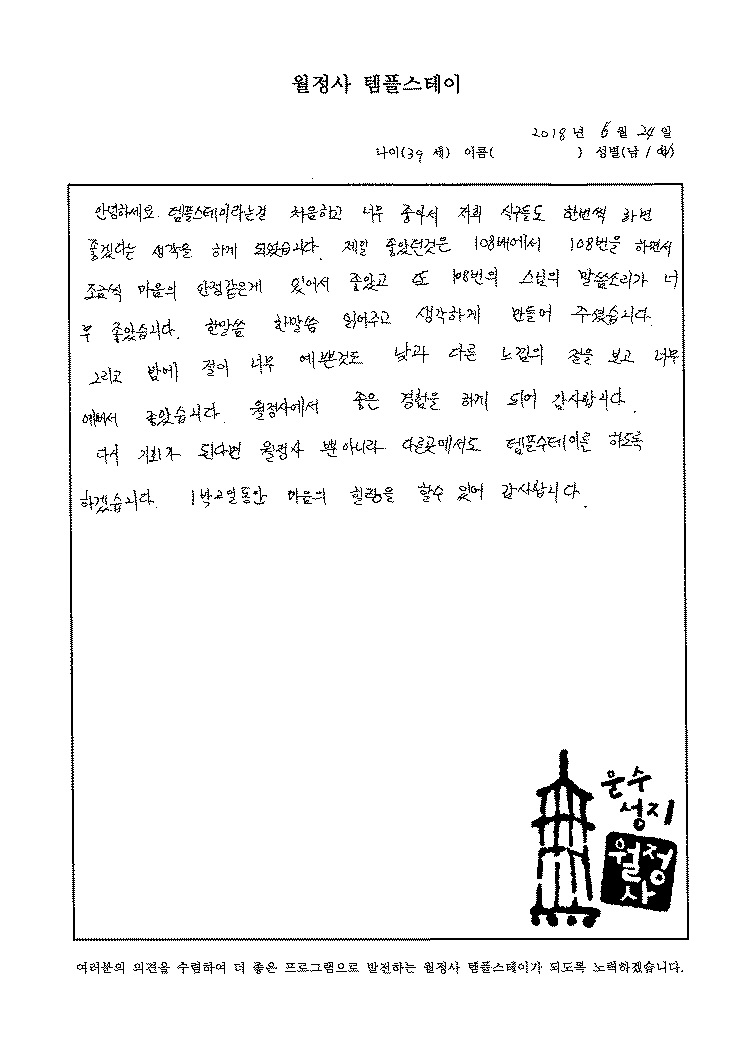 월정사 템플스테이
2018 년 6 월 24 일
나이(39 세) 이름( ) 성별(남 / 여)
안녕하세요. 템플스테이라는걸 처음하고 너무 좋아서 저희 식구들도 한번씩 하면
좋겠다는 생각을 하게 되었습니다. 제일 좋았던것은 108배에서 108번을 하면서
조금씩 마음의 안정같은게 있어서 좋았고 또 108번의 스님의 말씀소리가 너
무 좋았습니다. 한말씀 한말씀 읽어주고 생각하게 만들어 주셨습니다.
그리고 밤에 절이 너무 예쁜것도 낮과 다른 느낌의 절을 보고 너무
예뻐서 좋았습니다. 월정사에서 좋은 경험을 하게 되어 감사합니다.
다시 기회가 된다면 월정사 뿐아니라 다른곳에서도 템플수테이를 하도록
하겠습니다. 1박2일동안 마음의 힐링을 할수 있어 감사합니다.
운수
성지
월정
사
여러분의 의견을 수렴하여 더 좋은 프로그램으로 발전하는 월정사 템플스테이가 되도록 노력하겠습니다.